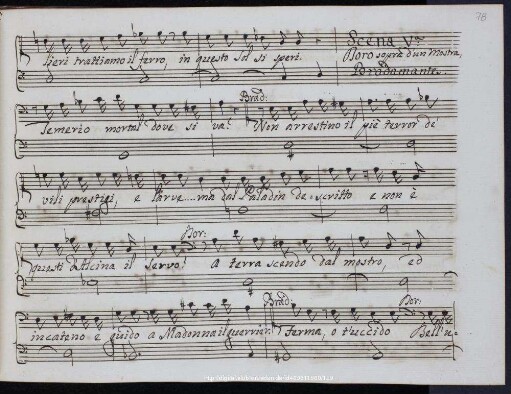 78
Scena V.a
lieri trattiamo il ferro, in questo sol si speri. Boro sopra d'un Mostro,
Bradamante.
Brad:
Temerio mortal dove si va? Non arrestino il piè terror de
vili prestigi, e larve... ma dal Paladin descritto e non è
Bor:
questi d'Alcina il servo? A terra scendo dal mostro, ed
Brad: Bor:
incateno e guido a Madonna il guerrier. Ferma, o t'uccido Bell'u=